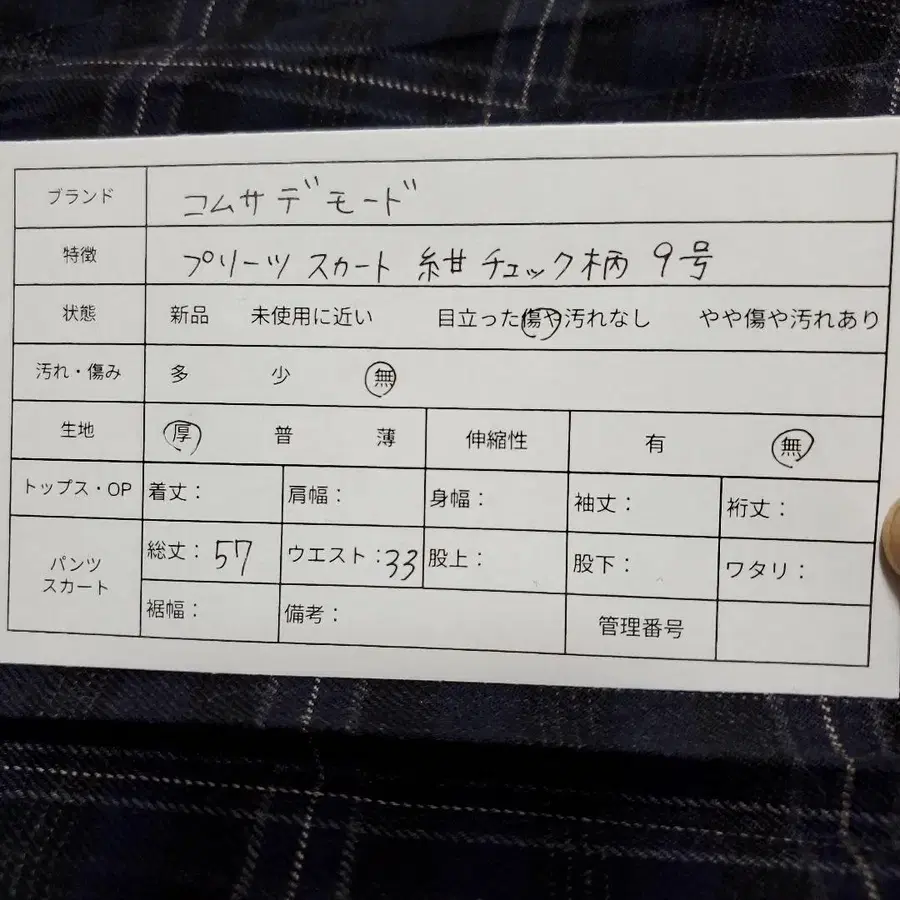 ブランド コムサデモード
特徴 プリーツ スカート 紺 チェック柄 9号
状態 新品 未使用に近い 目立った傷や汚れなし やや傷や汚れあり
汚れ・傷み 多 少 無
生地 厚 普 薄 伸縮性 有 無
トップス・OP 着丈: 肩幅: 身幅: 袖丈: 裄丈:
パンツ スカート 総丈:57 ウエスト:33 股上: 股下: ワタリ:
裾幅: 備考: 管理番号